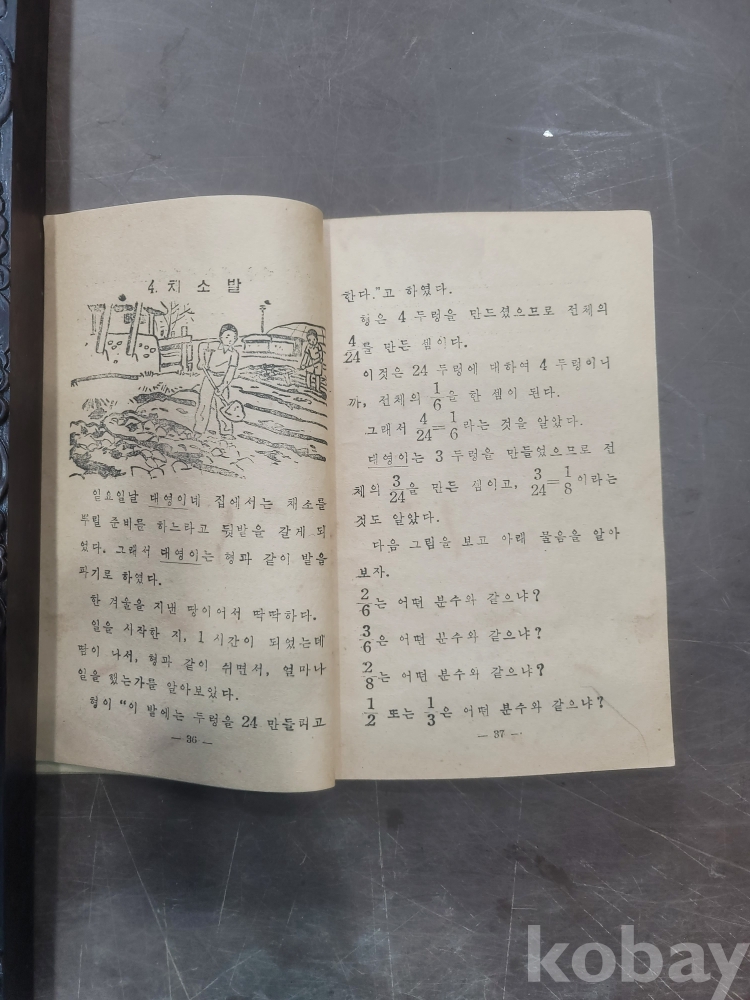 4. 채 소 밭
일요일날 대영이네 집에서는 채소를
뿌릴 준비를 하느라고 뒷밭을 갈게 되
었다. 그래서 대영이는 형과 같이 밭을
파기로 하였다.
한 겨울을 지낸 땅이어서 딱딱하다.
일을 시작한 지, 1 시간이 되었는데
땀이 나서, 형과 같이 쉬면서, 얼마나
일을 했는가를 알아보았다.
형이 "이 밭에는 두렁을 24 만들려고
— 36 —
한다."고 하였다.
형은 4 두렁을 만드셨으므로 전체의
4/24를 만든 셈이다.
이것은 24 두렁에 대하여 4 두렁이니
까, 전체의 1/6을 한 셈이 된다.
그래서 4/24=1/6라는 것을 알았다.
대영이는 3 두렁을 만들었으므로 전
체의 3/24을 만든 셈이고, 3/24=1/8이라는
것도 알았다.
다음 그림을 보고 아래 물음을 알아
보자.
2/6는 어떤 분수와 같으냐?
3/6은 어떤 분수와 같으냐?
2/8는 어떤 분수와 같으냐?
1/2 또는 1/3은 어떤 분수와 같으냐?
— 37 —
kobay